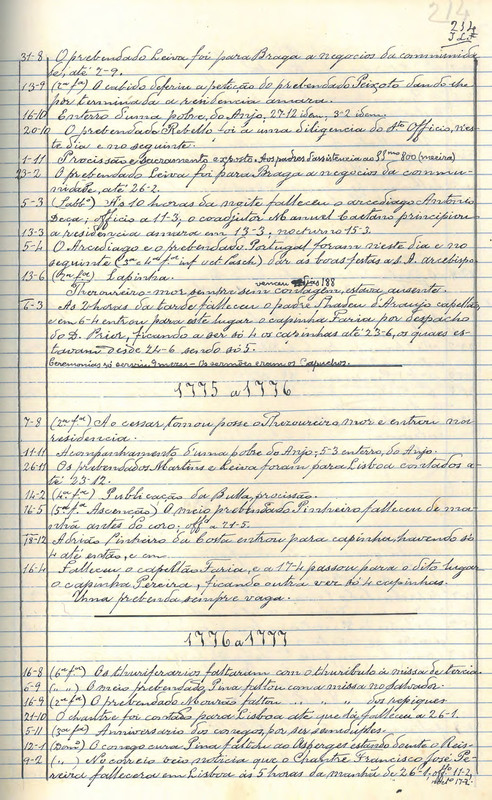 214
234
J.L.F.
31-8 O prebendado Leiva foi para Braga a negocios da communida
de, até 7-9.
13-9 (2ª fª) O cabido deferiu a petição do prebendado Peixoto dando-lhe
por terminada a residencia amara.
16-10 Enterro d'uma pobre, do Anjo, 27-12 idem, 3-2 idem.
20-10 O prebendado Rebello foi a uma diligencia do Stº Officio, n'es-
te dia e no seguinte.
1-11 Procissão e Sacramento exposto. Aos padres d'assistencia ao SSmo 800 (maceira)
23-2 O prebendado Leiva foi para Braga a negocios da commu-
nidade, até 26-2.
5-3 (Sabbº) Às 10 horas da noite falleceu o arcediago Antonio
Deça; officio a 11-3; o coadjutor Manuel Caetano principiou
13-3 a residencia amara em 13-3; nocturno 15-3.
5-4 O Arcediago e o prebendado Portugal foram n'este dia e no
seguinte (3ª e 4ª fª inf. oct. Pasch.) dar as boas festas a S. A. arcebispo.
13-6 (2ª fª) Capinha.
venceu 188
Thesoureiro-mor sempre sem contagem, estava ausente.
6-3 Às 2 horas da tarde falleceu o padre Thadeu d'Araujo capellão,
e em 6-4 entrou para este lugar o capinha Faria por despacho
do D. Prior, ficando a ser só 4 os capinhas até 23-6, os quaes es-
tavam desde 24-6 sendo só 5.
Ceremonias só serviu 9 mezes - Os sermões eram os Capuchos.
1775 a 1776
7-8 (2ª fª) Ao cessar, tomou posse o Thesoureiro mor e entrou na
residencia.
11-11 Acompanhamento d'uma pobre do Anjo; 5-3 enterro, do Anjo.
26-11 Os prebendados Martins e Leiva foram para Lisboa contados a-
té 23-12.
14-2 (4ª fª) Publicação da Bulla, procissão.
16-5 (5ª fª Ascenção) O meio prebendado Pinheiro falleceu de ma-
nhã antes do coro; offº a 21-5.
18-12 Adrião Pinheiro da Costa entrou para capinha, havendo só
4 até então, e em
16-4 Falleceu o capellão Faria, e a 17-4 passou para o dito lugar
o capinha Pereira, ficando outra vez só 4 capinhas.
Uma prebenda sempre vaga.
1776 a 1777
16-8 (6ª fª) Os thuriferarios faltaram com o thuribulo à missa de tercia.
6-9 (" ") O meio prebendado Pina faltou com a missa no Salvador.
16-9 (2ª fª) O prebendado Mourão faltou " " " dos repiques.
21-10 O chantre foi contado para Lisboa até que lá falleceu a 26-1.
5-11 (3ª fª) Anniversario dos conegos, por ser semiduplex.
12-1 (Domº) O conego cura Pina faltou ao Asperges estando doente o Reis.
9-2 (") No correio veio noticia que o Chantre Francisco José Pe-
reira fallecera em Lisboa às 5 horas da manhã de 26-1, offº 11-2,
17-2.